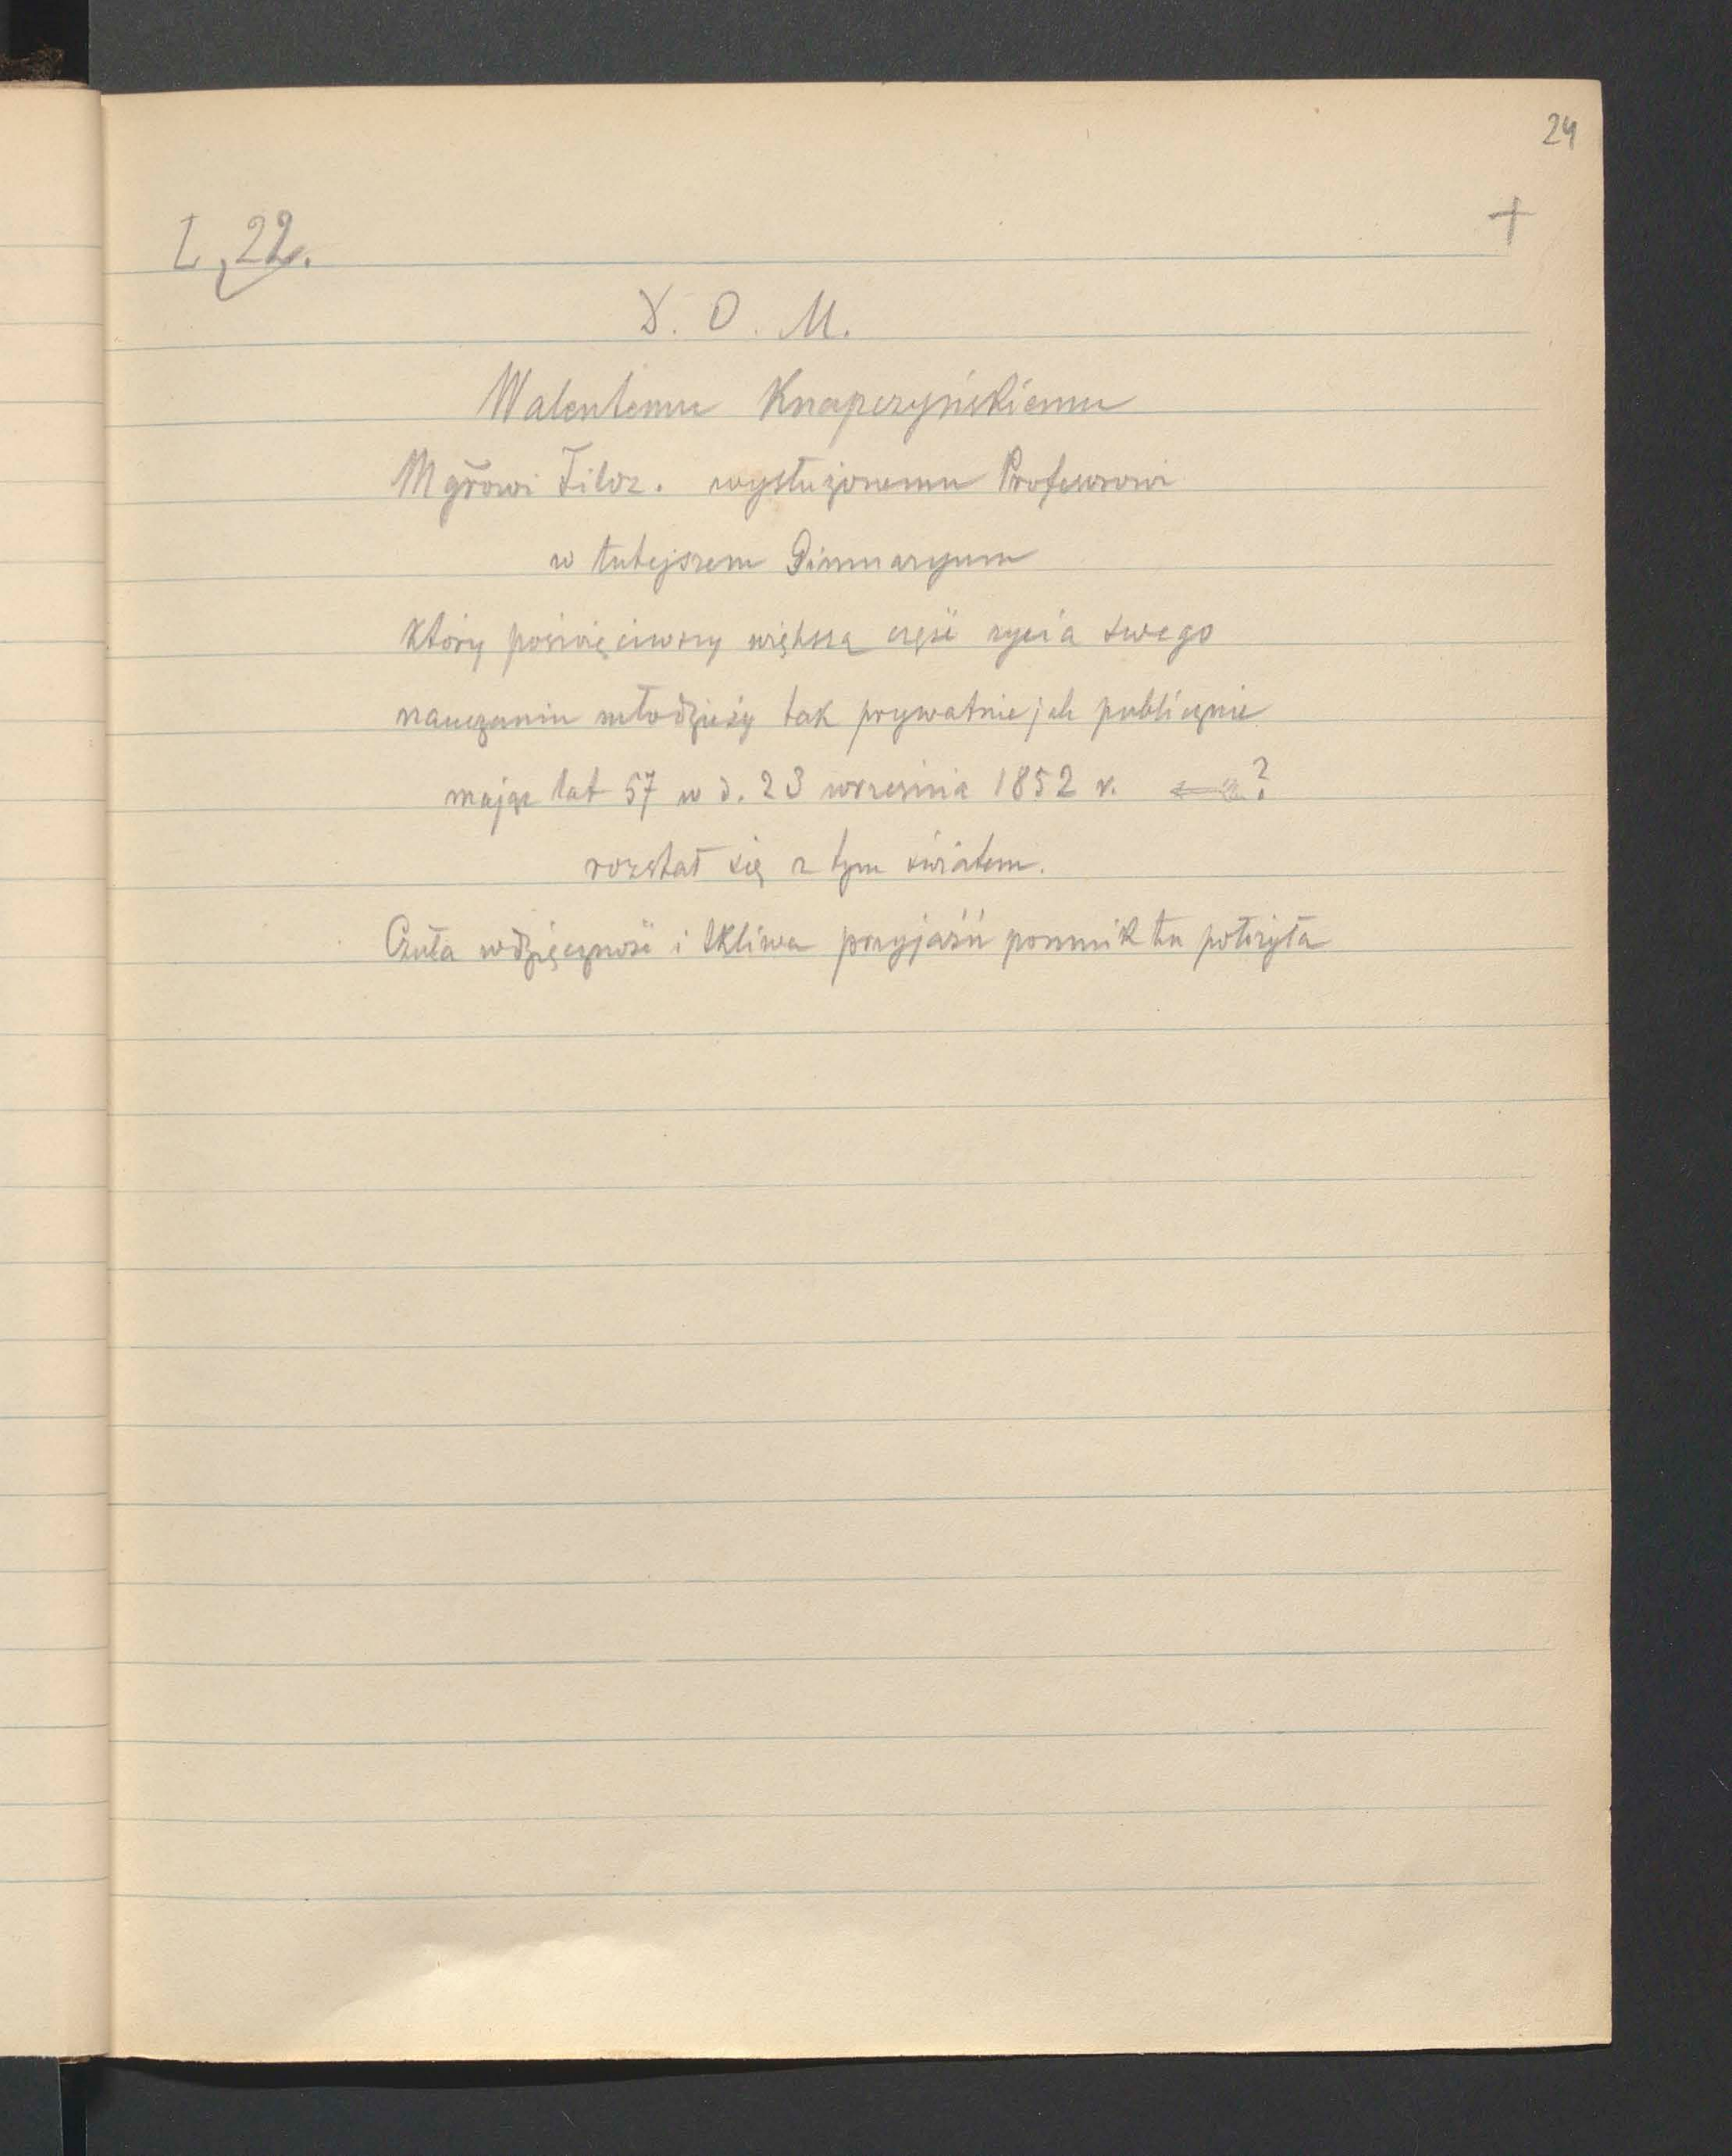 24
+
L, 22.
D. O. M.
Walentemu Knapczyńskiemu
Mgrowi Filoz. wysłużonemu Profesorowi
w tutejszem Gimnazyum
który poświęciwszy większą część życia swego
nauczaniu młodzieży tak prywatnie jak publicznie
mając lat 57 w d. 23 września 1852 r. ?
rozstał się z tym światem.
Czuła wdzięczność i tkliwa przyjaźń pomnik tu położyła